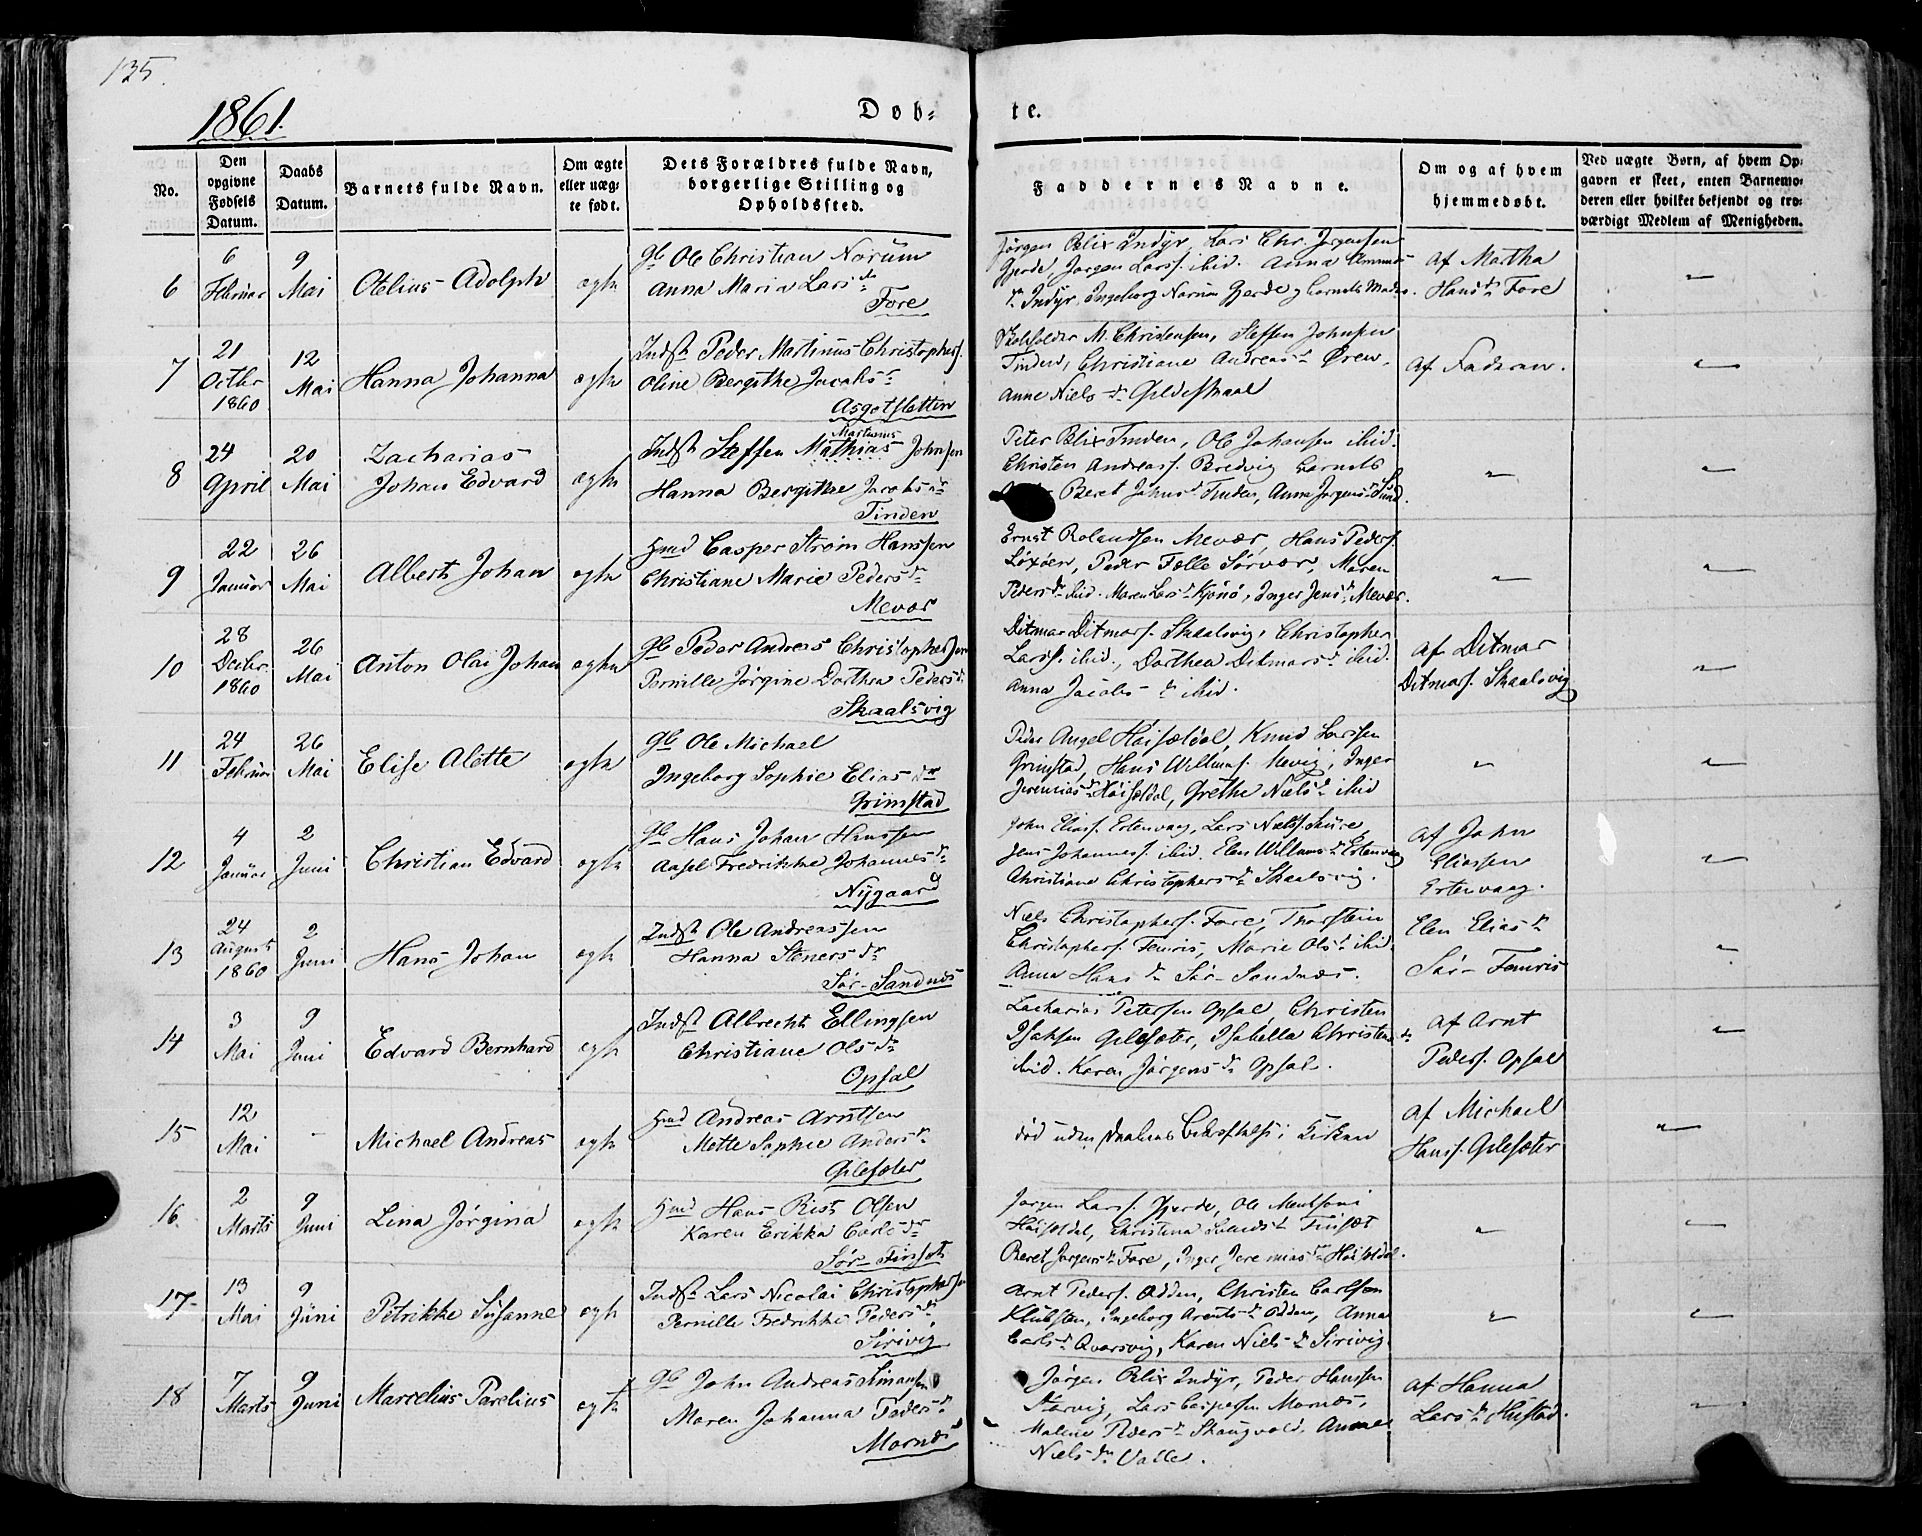 135.
1861.
Døb-
te.
No.
Den opgivne Fødsels Datum.
Daabs Datum.
Barnets fulde Navn.
Om ægte eller uæg- te født.
Dets Forældres fulde Navn, borgerlige Stilling og Opholdssted.
Faddernes Navne.
Om og af hvem hjemmedøbt.
Ved uægte Børn, af hvem Op- gaven er skeet, enten Barnemo- deren eller hvilket bekjendt og tro- værdigt Medlem af Menigheden.
6
6 Februar
9 Mai
Otelius Adolph
ægte
Gb Ole Christian Norum
Anna Maria Larsdr
Fore
Jørgen Blix Indyr, Lars Chr. Jørgensen
Gjerde, Jørgen Larss. ibid. Anna Amunds
dr Indyr, Ingeborg Norum Gjerde, barnets Moder.
af Martha
Hansdr Fore
7
21 Octbr 1860
12 Mai
Hanna Johanna
ægte
Indst Peder Martinus Christophers.
Oline Bergithe Jacobsdr
Asgotsletten
Skoleholder M. Christensen, Steffen Johnsen
Tinden, Christiane Andreasdr Ören,
Anne Nielsdr Gildeskaal
af Faderen.
8
24 April
20 Mai
Zacharias
Johan Edvard
ægte
Martinus
Indst Steffen Mathias Johnsen
Hanna Bergithe Jacobsdr
Tinden
Peter Blix Tinden, Ole Johansen ibid.
Christen Andreass. Bredvig barnets
Beret Johnsdr Tinden, Anna Jørgensdr Sund.
9
22 Januar
26 Mai
Albert Johan
ægte
Hmd Casper Strøm Hanssen
Christiane Marie Pedersdr
Mevær
Ernst Rolandsen Mevær, Hans Peders.
Løxöen, Peder Falle Sørvær, Maren
Pedersdr ibid. Maren Larsdr Kjønö, Inger Jensdr Mevær.
10
28 Decbr. 1860
26 Mai
Anton Olai Johan
ægte
Gb Peder Andreas Christophersen
Pernille Jørgine Dorthea Pedersdr
Skaalsvig
Ditmar Ditmars. Skaalsvig, Christopher
Larss. ibid., Dorthea Ditmarsdr ibid.
Anna Jacobsdr ibid.
af Ditmar
Ditmars. Skaalsvig
11
24 Februar
26 Mai
Elise Alette
ægte
Gb Ole Michael
Ingeborg Sophie Eliasdr
Grimstad
Peder Angel Høiseldal, Knud Larssen
Grimstad, Hans Willums. Mevig, Inger
Jeremiasdr Høiseldal, Grethe Nielsdr ibid
12
4 Januar
2 Juni
Christian Edvard
ægte
Gb Hans Johan Hanssen
Aasel Fredrikke Johannesdr
Nygaard
John Eliass. Ertenvaag, Lars Nielss. Skure,
Jens Johanness. ibid. Elen Willumsdr Ertenvaag
Christiane Christophersdr Skaalsvig.
af John
Eliassen
Ertenvaag.
13
24 August 1860
2 Juni
Hans Johan
ægte
Indst Ole Andreassen
Hanna Stenersdr
Sør-Sandnæs
Niels Christophers. Fore, Thorstein
Christophers. Femris, Marie Olsdr ibid.
Anna Hansdr Sør-Sandnæs.
Elen Eliasdr
Sør-Femris
14
3 Mai
9 Juni
Edvard Bernhard
ægte
Indst Albrecht Ellingsen
Christiane Olsdr
Opsal
Zacharias Petersen Opsal, Christen
Isaksen Gilesæter, Isabella Christensdr
ibid. Karen Jørgensdr Opsal.
af Arnt
Peders. Opsal
15
12 Mai
-
Michael Andreas
ægte
Hmd Andreas Arntsen
Mette Sophie Andersdr
Gilesæter
død uden Daabens Bekræftelse i Kirken
af Michael
Hanss. Gilesæter
16
2 Marts
9 Juni
Lina Jørgina
ægte
Hmd Hans Rist Olsen
Karen Erikka Carlsdr
Sør-Finset
Jørgen Larss. Gjerde, Ole
Høiseldal, Christina Finsæt
Beret Jørgensdr Fore, Inger Jeremiasdr Høiseldal.
17
13 Mai
9 Juni
Petrikke Susanne
ægte
Indst Lars Nicolai Christophersen
Pernille Fredrikke Pedersdr
Sirivig
Arnt Peders. Odden, Christen Carlsen
Klubsten, Ingeborg Arntsdr Odden, Anna
Carlsdr Qvarsvig, Karen Nielsdr Sirivig.
18
7 Marts
9 Juni
Marcelius Parelius
ægte
Gb John Andreas Simonsen
Maren Johanna Pedersdr
Mornæs
Jørgen Blix Indyr, Peder Hanssen
Storvig, Lars Caspersen Mornæs,
Malene Pedersdr Skaugvold, Anne
Nielsdr Valle.
af Hanna
Larsdr Hustad.